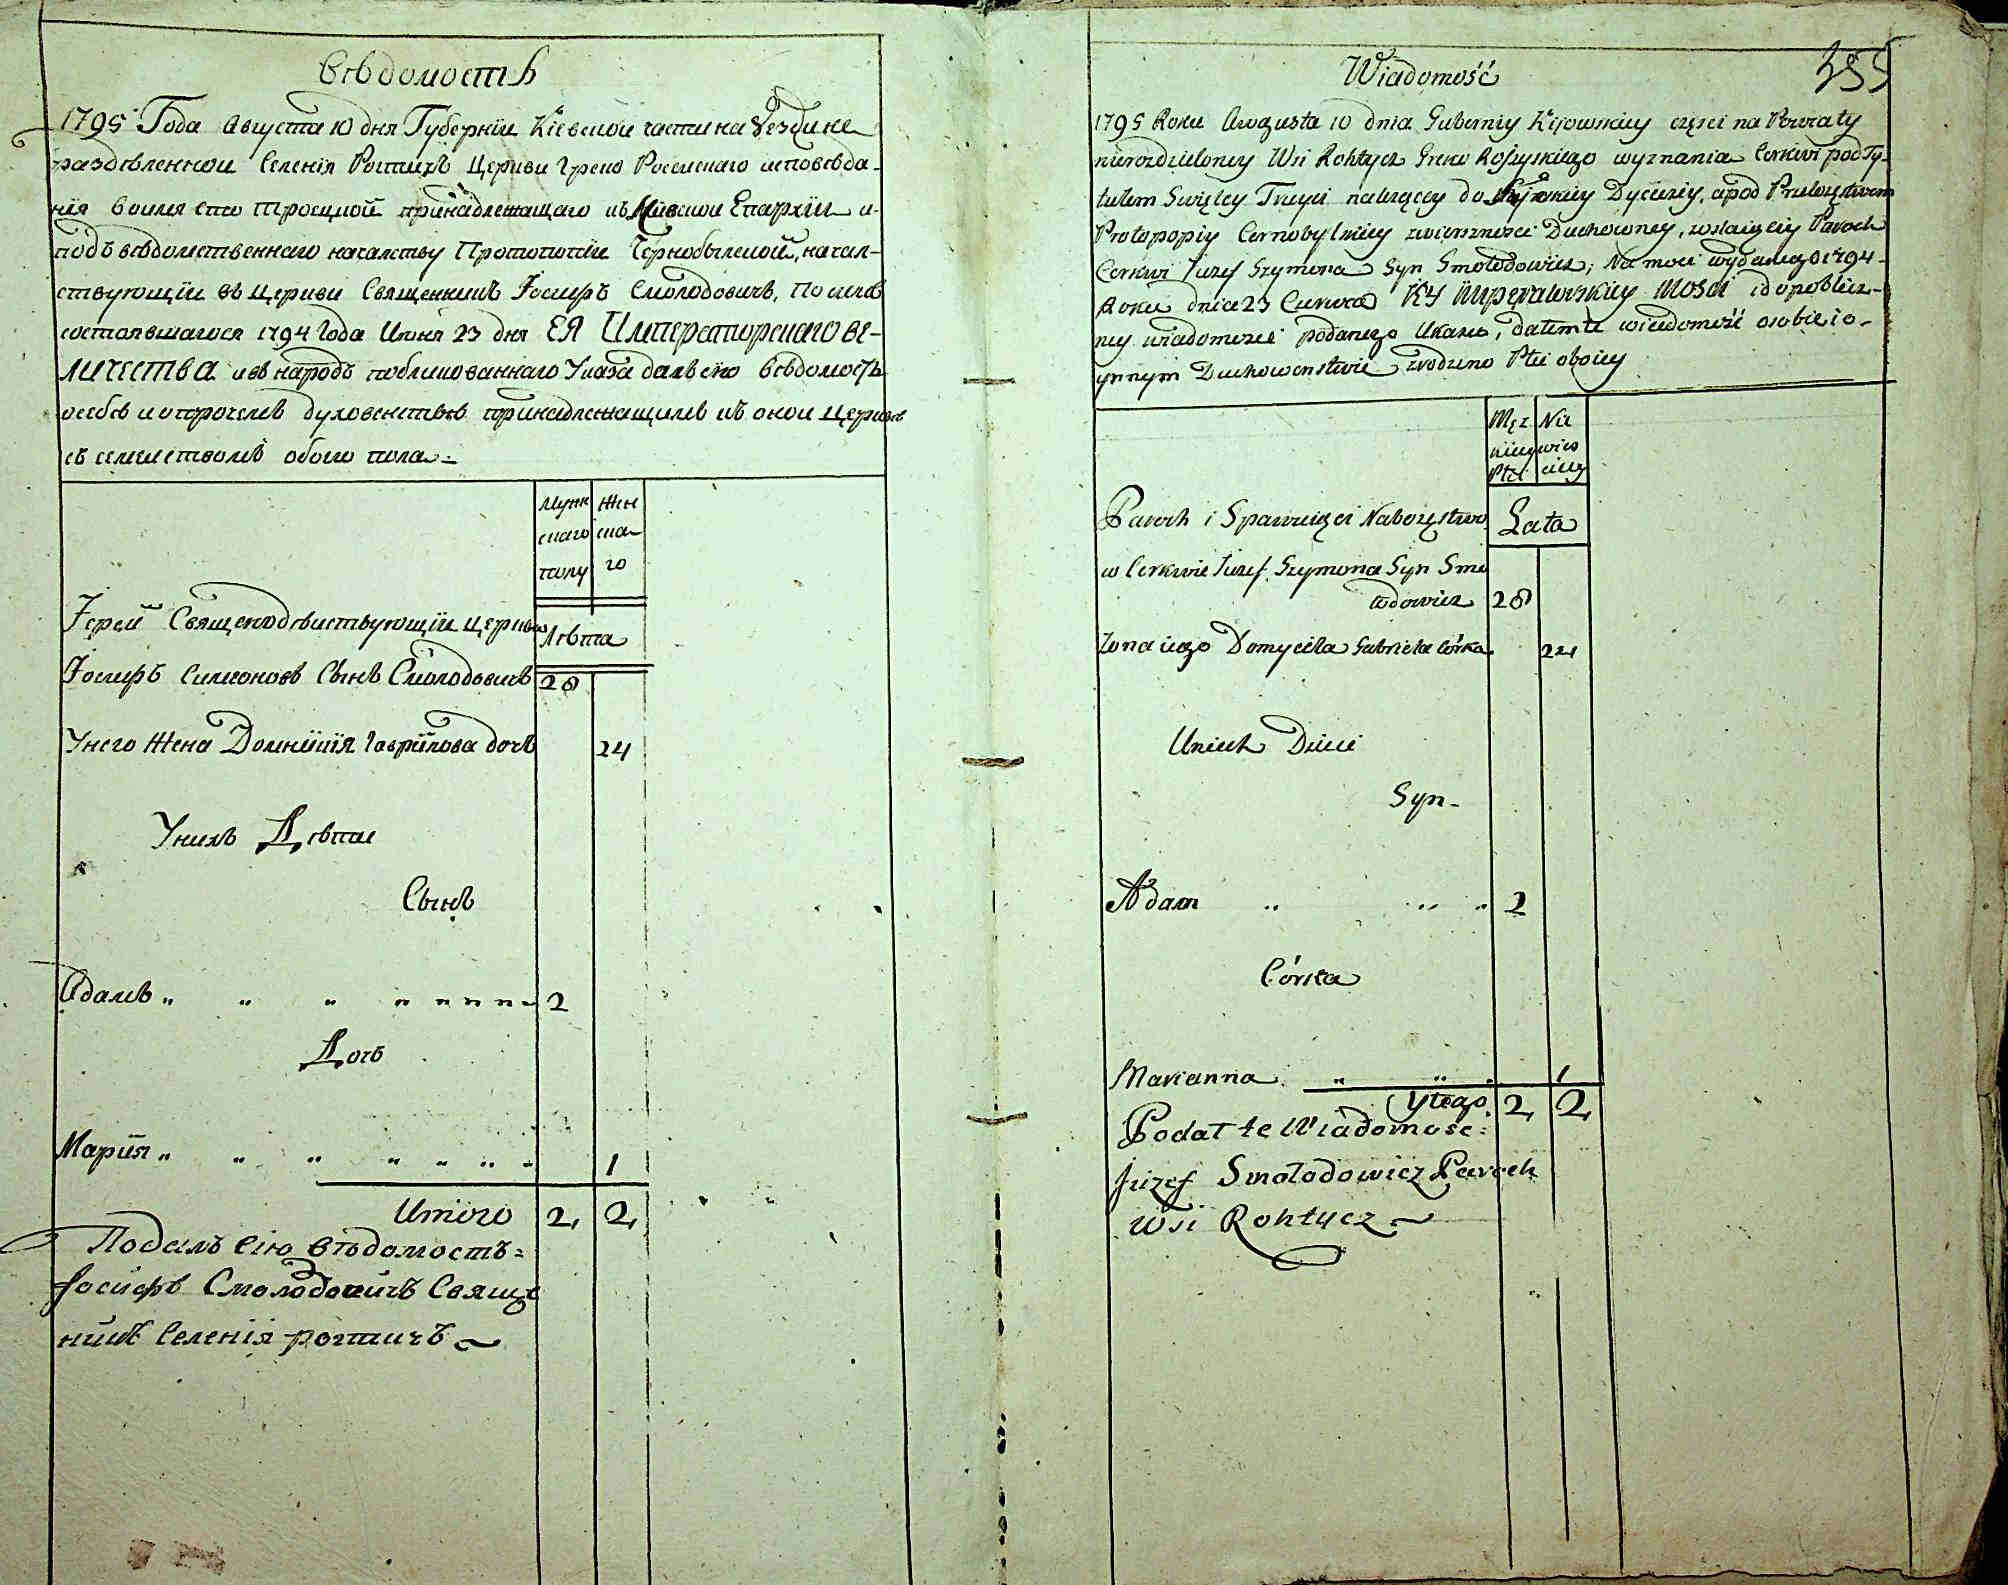 Вѣдомость
1795 Года Августа 10 дня Губернїи Кіевской части на Уезди не
раздѣленной Селенія Рогтичъ Церкви Греко Россискаго исповѣда-
нія во имя сто Троецкой принадлежащаго къ Кіевской Епархїи и
подъ вѣдомственнаго начальству Протопопїи Чернобыльской, начал-
ствующїи въ Церкви Священникъ Іосифъ Смолодовичъ, По силѣ
состоявшагося 1794 Года Июня 23 дня ЕЯ Императорскаго ве-
личества и въ народъ публикованнаго Указа далъ сїю Вѣдомость
о себѣ и о протчемъ духовенствѣ принадлежащимъ къ оной Церквѣ
съ семействомъ обоего пола.
Мужскаго полу
Женскаго
Іерей Священодѣиствующїи церкви
Лѣта
Іосифъ Симеоновъ Сынъ Смолодовичъ 28
У него Жена Домникїя Гаврилова дочь 24
У нихъ Дѣти
Сынъ
Адамъ 2
Дочь
Марїя 1
Итого 2, 2,
Подалъ сію вѣдомость=
Іосифъ Смолодовичъ Свяще
никъ Селенія рогтичъ
355
Wiadomość
1795 Roku Augusta 10 dnia Guberniy Kijowskiey częsci na Powiaty
nierozdzieloney Wsi Rohtycz Greko Rossyskiego wyznania Cerkwi pod Ty-
tułem Swiętey Troycy należącey do Kijowskiey Dyeceziy, a pod Przełożstwem
Protopopiy Czernobylskiey zwierzchności Duchowney, zostaiącey Paroch
Cerkwi Juzef Szymona Syn Smołodowicz, Na moci wydanego 1794
Roku dnia 23 Czerwca KY Imperatorskiey Mosci i do publicz-
ney wiadomosci podanego Ukazu, dałem te wiadomość o sobie i o
ynnym Duchowenstwie zrodzino Płci oboiey
Męzkiey Płci
Niewiesciey
Paroch i Sprawuiący Nabożęstwo Lata
w Cerkwie Juzef Szymona Syn Smo
łodowicz 28
Zona iego Domycela Gabriela Córka 24
U nich Dzieci
Syn
Adam 2
Córka
Marianna 1
Ytego 2, 2,
Podał te Wiadomość:
Juzef Smołodowicz Paroch
Wsi Rohtycz